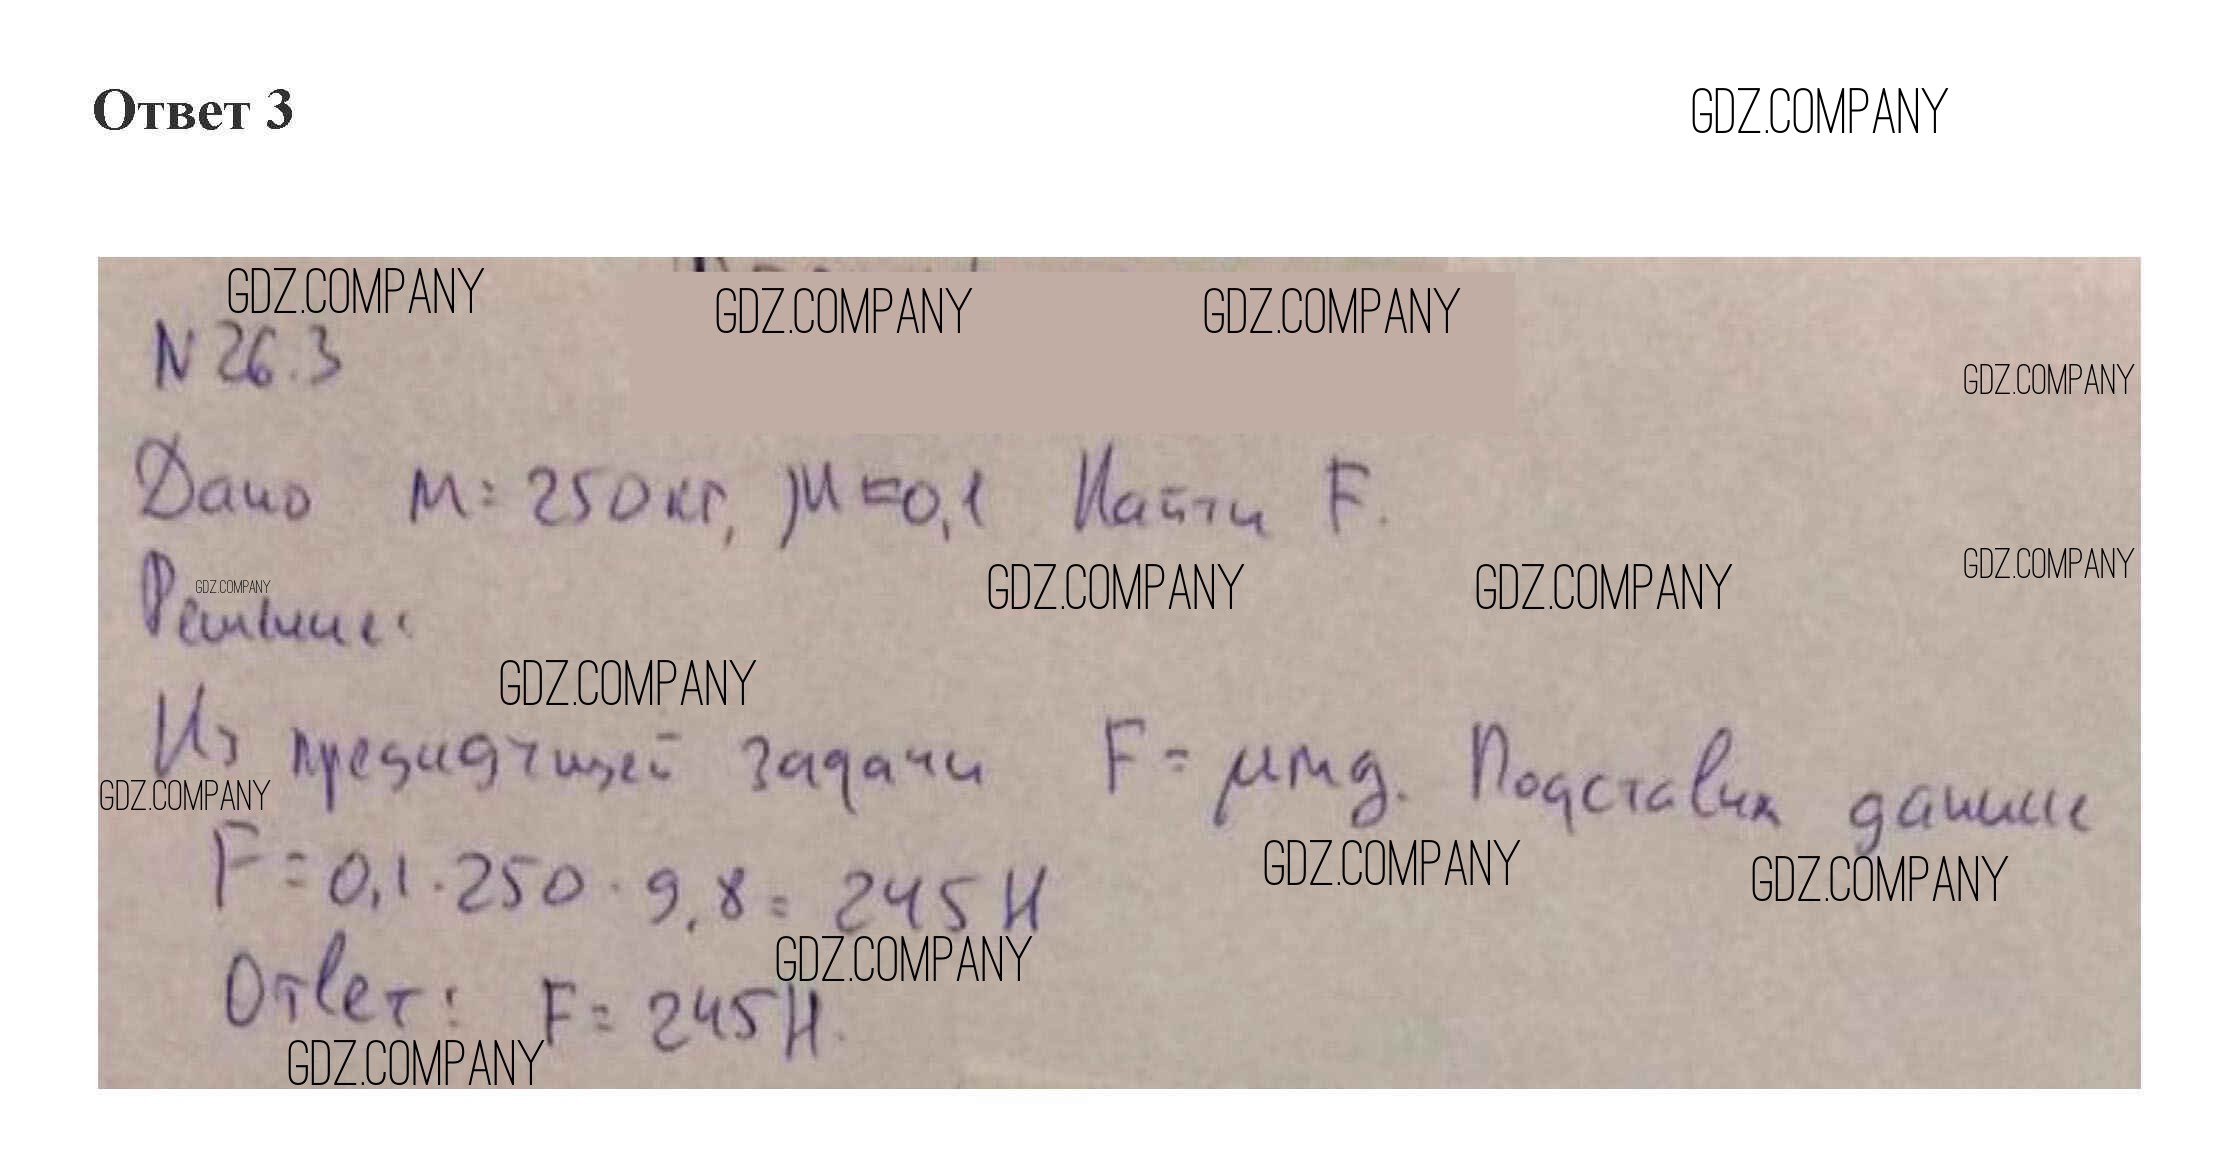 Ответ 3
GDZ.COMPANY
GDZ.COMPANY
GDZ.COMPANY
GDZ.COMPANY
N 26.3
GDZ.COMPANY
Дано m = 250 кг, μ = 0,1 Найти F.
GDZ.COMPANY
GDZ.COMPANY
GDZ.COMPANY
GDZ.COMPANY
Решение:
GDZ.COMPANY
Из предидущей задачи F = μmg. Подставим данные
GDZ.COMPANY
F = 0,1 · 250 · 9,8 = 245 Н
GDZ.COMPANY
GDZ.COMPANY
GDZ.COMPANY
Ответ: F = 245 Н.
GDZ.COMPANY